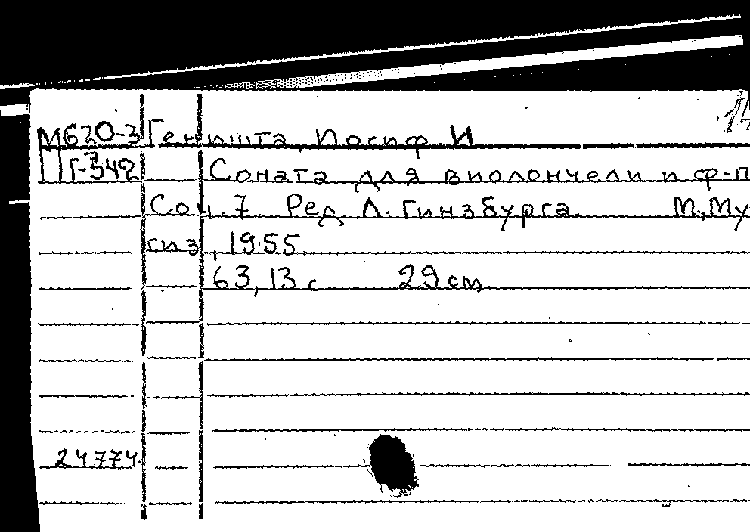 М620-3 Геништа, Иосиф И
Г-342 Соната для виолончели и ф-п
Соч. 7 Ред. Л. Гинзбурга. М., Му
гиз, 1955
63, 13 с 29 см
24774